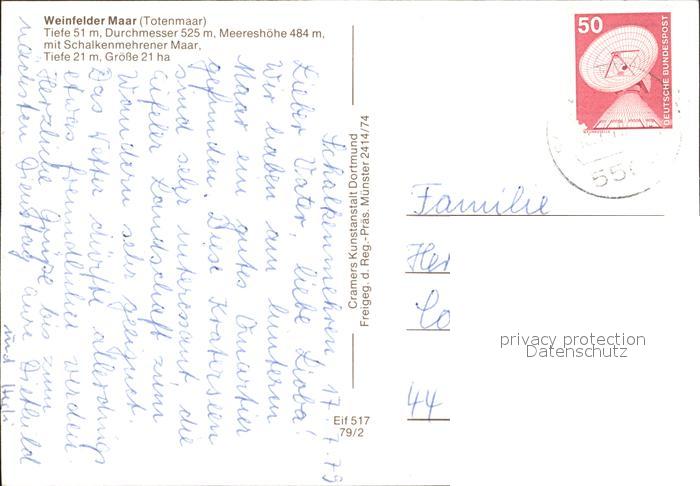 Weinfelder Maar (Totenmaar)
Tiefe 51 m, Durchmesser 525 m, Meereshöhe 484 m,
mit Schalkenmehrener Maar,
Tiefe 21 m, Größe 21 ha
Schalkenmehren 17.7.79
Lieber Vater, liebe Lioba!
Wir haben am hinteren
Maar ein gutes Quartier
gefunden. Diese Kraterseen
sind sehr interessant, die
Eifeler Landschaft zum
Wandern sehr geeignet.
Das Wetter dürfte allerdings
etwas freundlicher werden.
Herzliche Grüße bis zum
nächsten Dienstag eure Diethild
und
Cramers Kunstanstalt Dortmund
Freigeg. d. Reg.-Präs. Münster 2414/74
Eif 517
79/2
50
DEUTSCHE BUNDESPOST
55
Familie
Her
Lo
44
privacy protection
Datenschutz